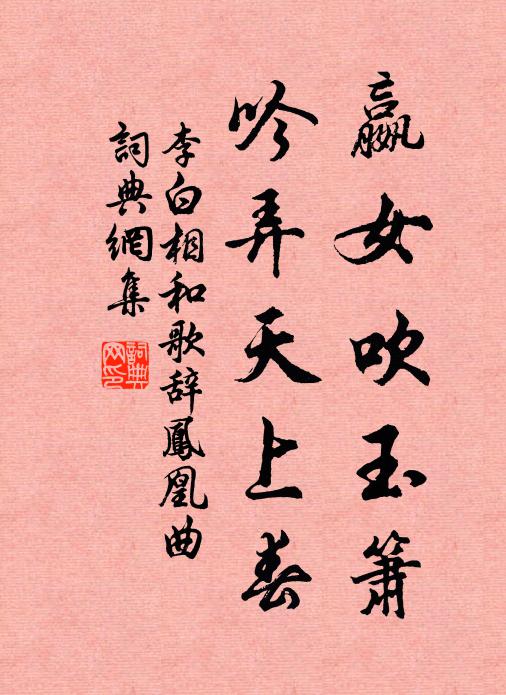 嬴女吹玉簫
吟弄天上春
李白相和歌辞鳳凰曲
詞典網集
詞典网印